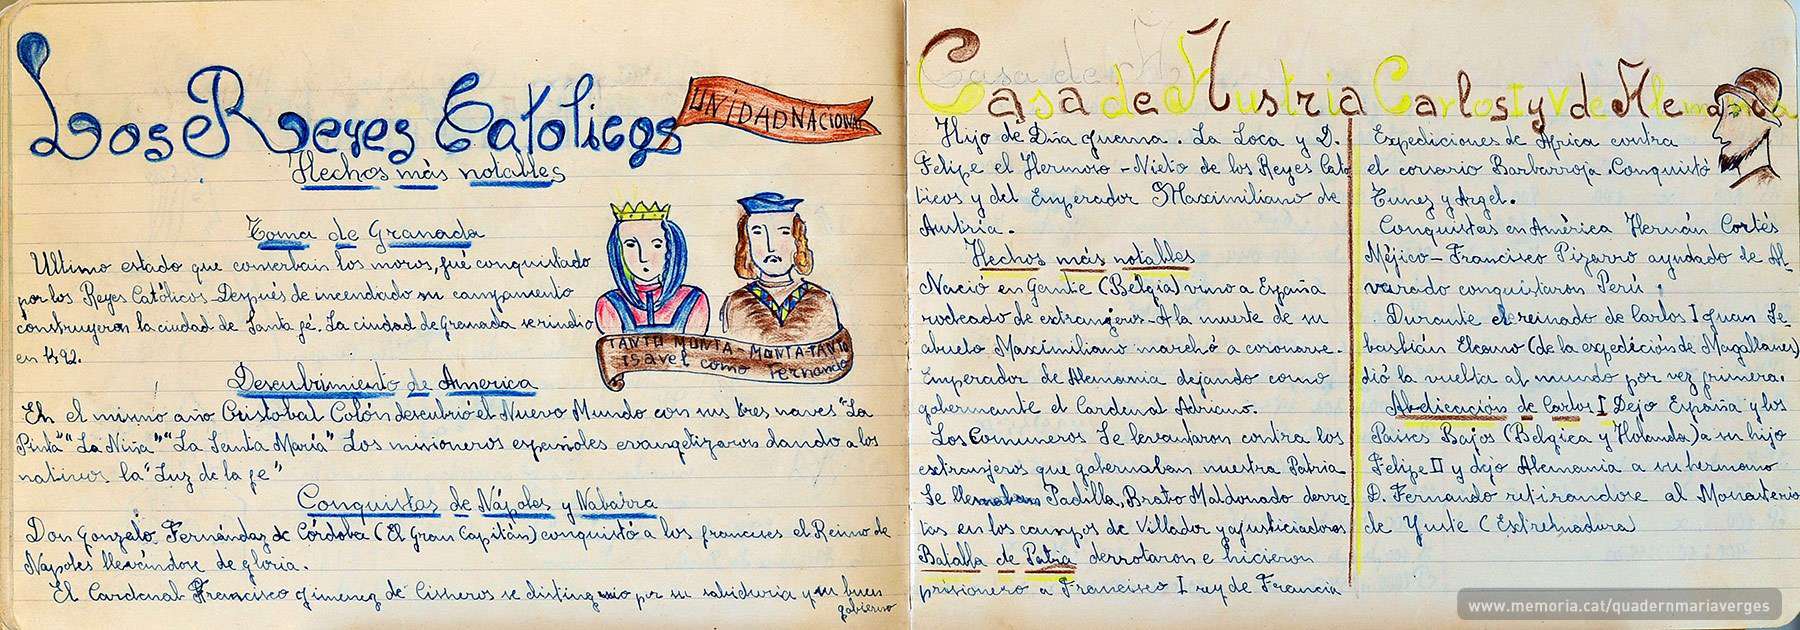 Los Reyes Católicos
UNIDAD NACIONAL
Hechos más notables
Toma de Granada
Ultimo estado que conserbain los moros, fué conquistado
por los Reyes Católicos Después de incendiado su campamento
construyeron la ciudad de Santa fé. La ciudad de Granada se rindio
en 1492.
TANTO MONTA - MONTA TANTO
Isavel como Fernando
Descubrimiento de America
En el mismo año Cristobal Colón descubrió el Nuevo Mundo con sus tres naves "La
Pinta" "La Niña" "La Santa María" Los misioneros españoles evangetizaron dando a los
nativos la "Luz de la fe"
Conquistas de Nápoles y Nabarra
Don Gonzalo Fernández de Córdoba (El Gran Capitán) conquistó a los franceses el Reino de
Napoles llevándose de gloria.
El Cardenal Francisco Jimenez de Cisneros se distinguio por su sabiduria y su buen
gobierno
Casa de Austria Carlos I y V de Alemania
Hijo de Dña Juana. La Loca y D.
Felipe el Hermoso - Nieto de los Reyes Cató
licos y del Emperador Maximiliano de
Austria.
Hechos más notables
Nació en Gante (Belgia) vino a España
rodeado de extranjeros - A la muerte de su
abuelo Maximiliano marchó a coronarse.
Emperador de Alemania dejando como
gobernante el Cardenal Adriano.
Los Comuneros Se levantaron contra los
extranjeros que gobernaban nuestra Patria
Se llemaban Padilla, Bravo Maldonado derro-
tas en los campos de Villador y ajusticiadoros
Batalla de Patria derrotaron e hicieron
prisionero a Francisco I rey de Francia
Expediciones de Africa contra
el corsario Barbarroja. Conquistó
Tunez y Argel.
Conquistas en América Hernán Cortés
Méjico - Francisco Pizarro ayudado de Al-
varado conquistaron Perú
Durante el reinado de Carlos I Juan Se-
bastián Elcano (de la expedición de Magallanes)
dió la vuelta al mundo por vez primera.
Abdicación de Carlos I Dejo España y los
Paises Bajos (Belgica y Holanda) a su hijo
Felipe II y dejo Alemania a su hermano
D. Fernando retirandose al Monasterio
de Yuste (Extremadura)
www.memoria.cat/quadernmariaverges